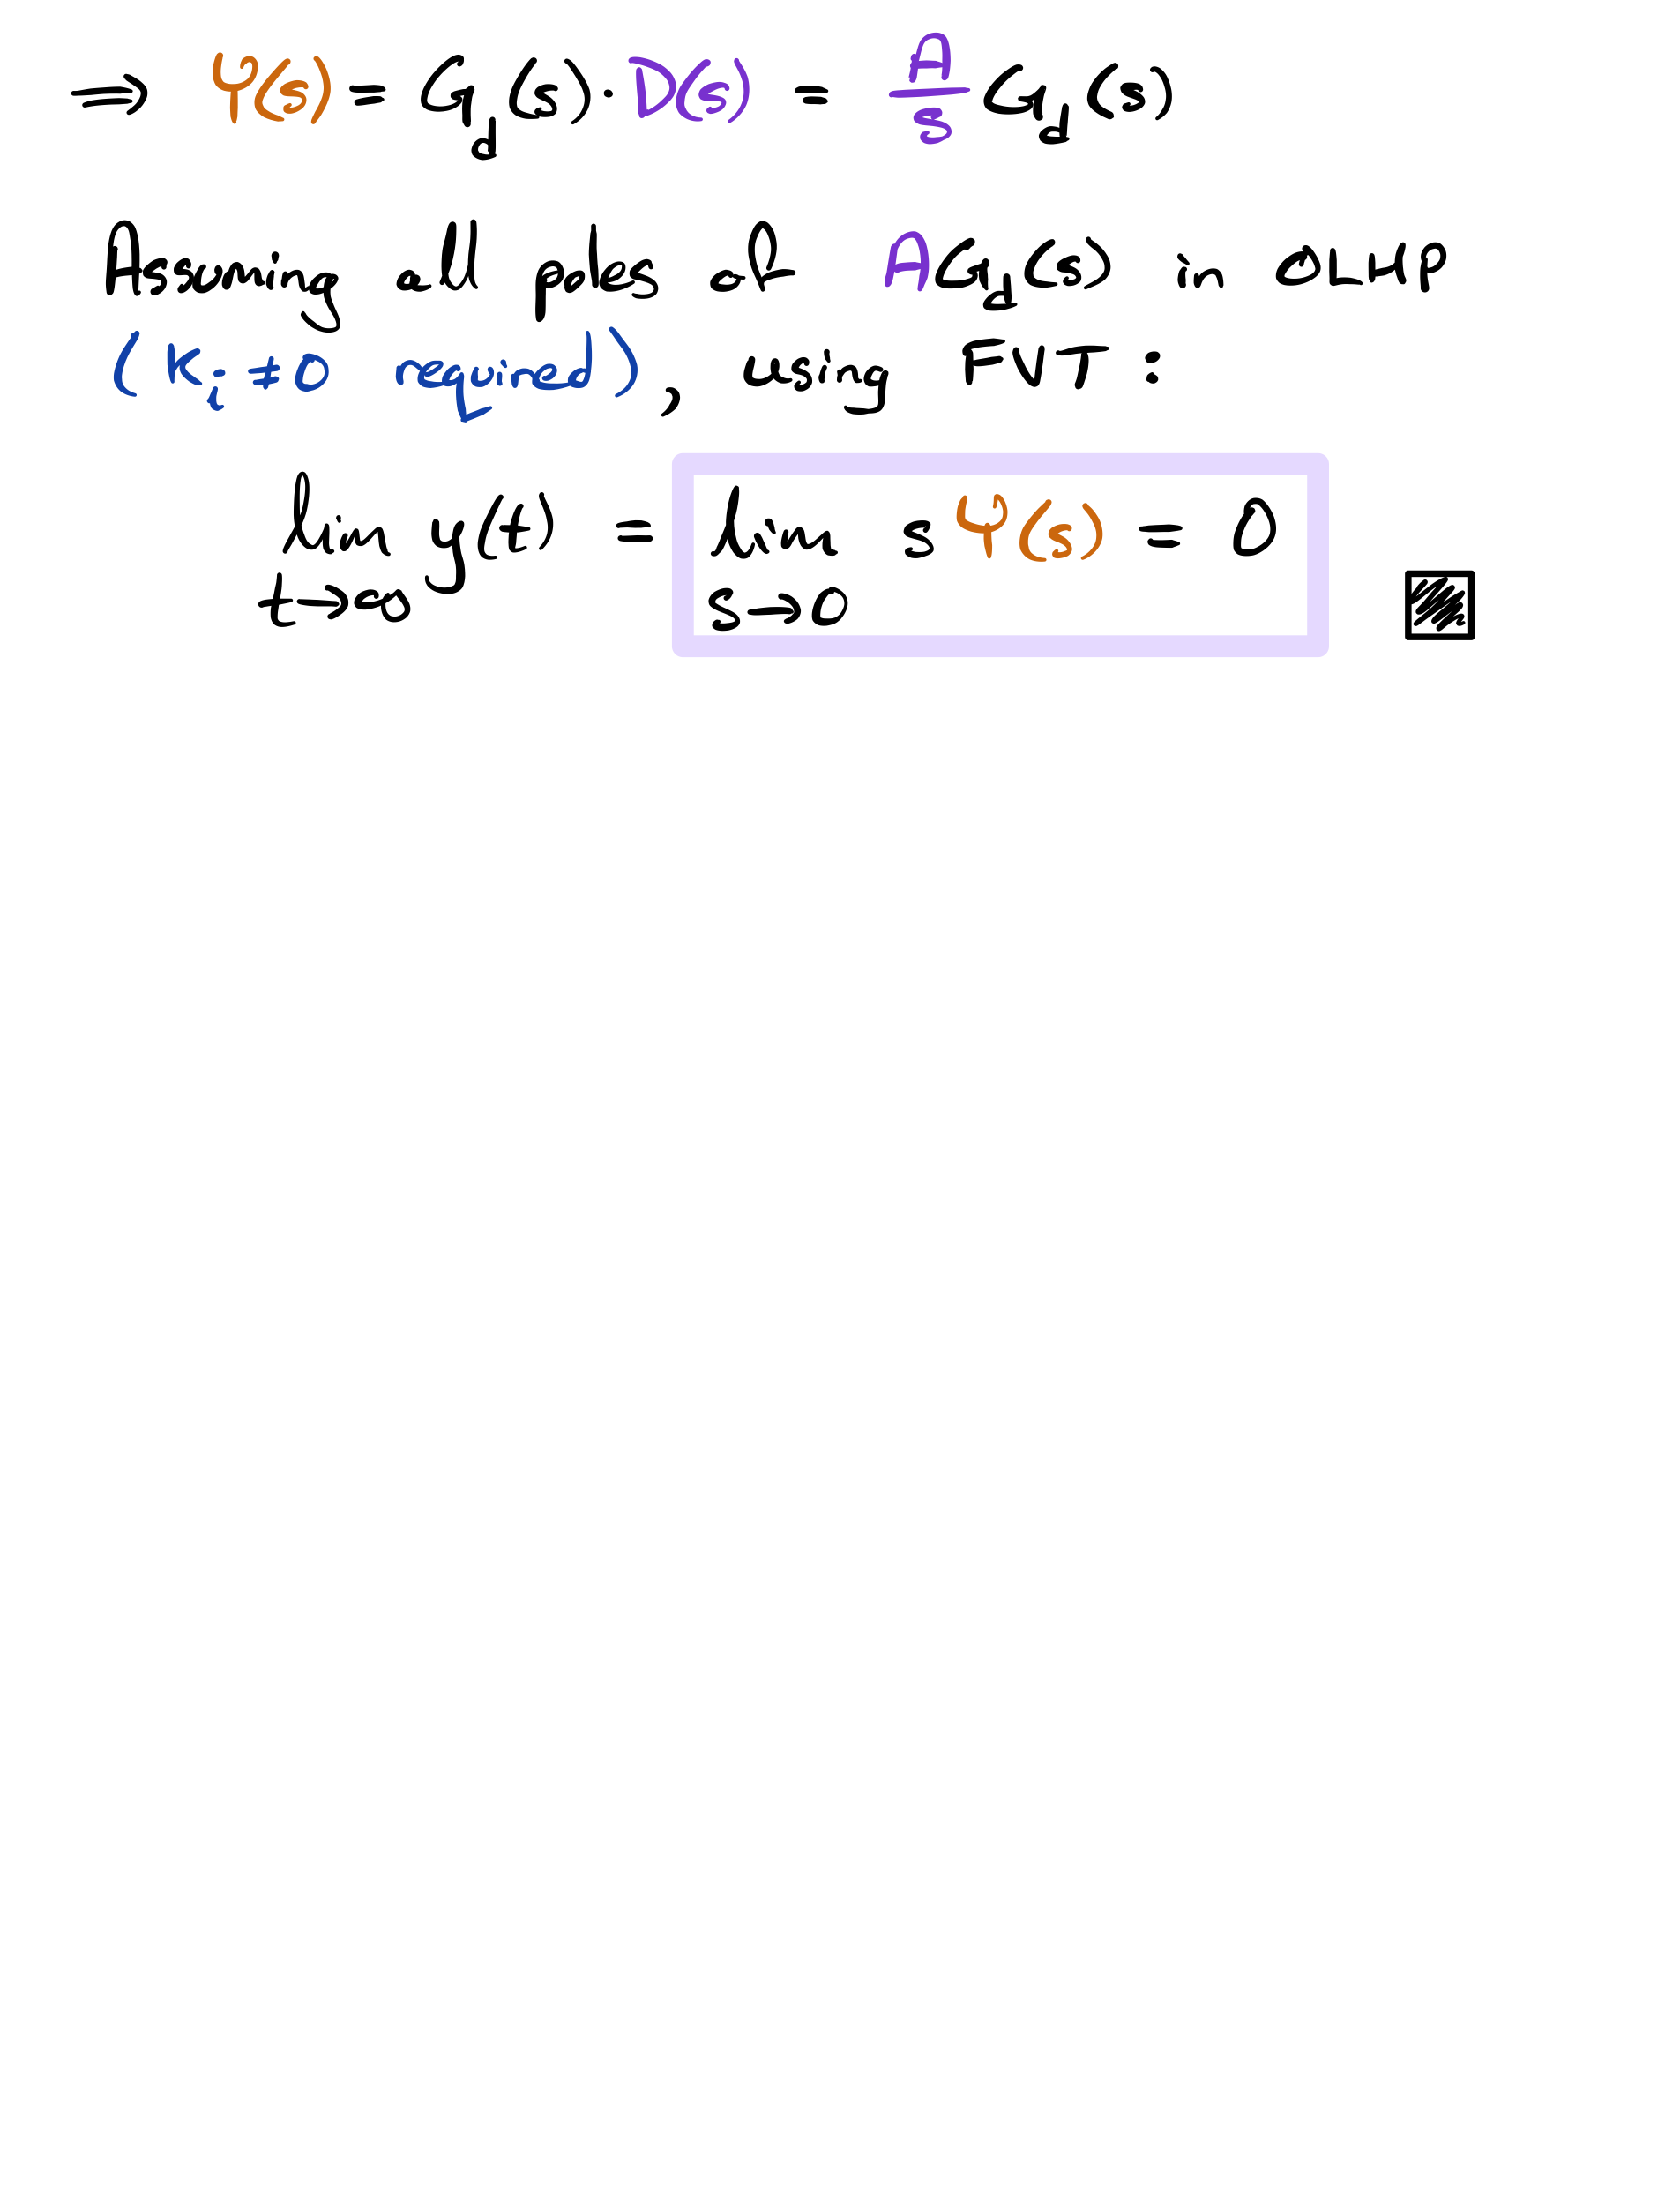 ⟹ Y(s) = G_d(s) · D(s) = A/s G_d(s)
Assuming all poles of A G_d(s) in OLHP
(K_i ≠ 0 required), using FVT :
lim_{t→∞} y(t) = lim_{s→0} s Y(s) = 0